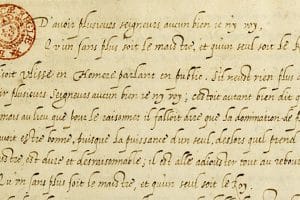 D'avoir plusieurs seigneurs aucun bien je ny voy,
Qu'un sans plus soit le maistre, et qu'un seul soit le
disoit Ulisse en Homere parlant en public. S'il neust rien plus
avoir plusieurs Seigneurs aucun bien je ny voy; cestoit autant bien dit
mais au lieu que pour le raisonner il falloit dire que la domination de
pouvoit estre bonne, puisque la puissance d'un seul, deslors quil prend
maistre est dure et desraisonnable; il est allé adjouster tout au rebours
Qu'un sans plus soit le maistre, et qu'un seul soit le Roy.